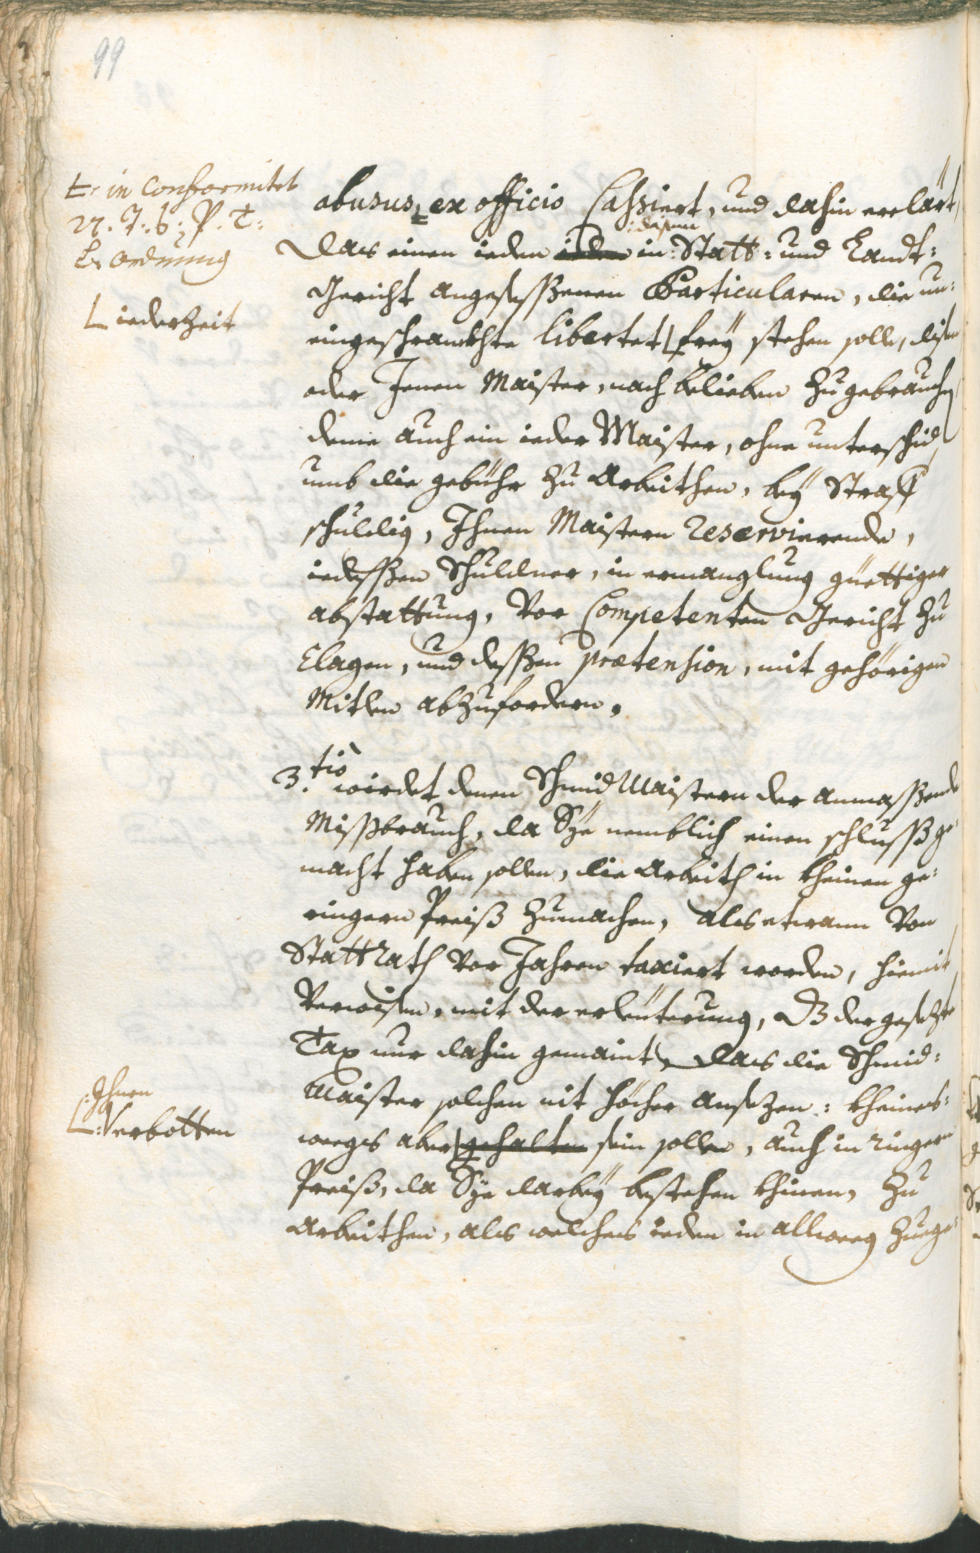 99
in Conformitet
27. T. 6. P. T.
Ordnung
iederzeit
abusus, ex officio Cassiert, und dahin erclärt,
dessen
das einen ieden ieden in: Statt: und Landt:
Gericht angesessenen Particularen, die un:
eingeschranckhte libertet frey stehen solle, disen
oder Jenen Maister, nach belieben zugebrauchen
deme auch ein ieder Maister, ohne unterschid
umb die gebühr zu Arbeithen, bey Straff
schuldig, Ihnen Maistern reservierende,
iedessen Schuldner, in ermanglung güettiger
abstattung, Vor Competenten Gericht zu
Clagen, und dessen prætension, mit gehörigen
Mitlen abzufordern.
3.tio wirdet denen SchmidMaistern der anmassende
Missbrauch, da Sye nemblich einen schluss ge
macht haben sollen, die Arbeith in kheinen ge:
ringern Preiß zumachen, als etwann Von
StattRath Vor Jahren taxiert worden, hiemit
Verwisen, mit der erleüterung, dz der gesezte
Tax nur dahin gemaint, das die Schmid:
Maister solchen nit höcher ansezen: kheines:
Ihnen
Verbotten
weegs aber gehalten sein solle, auch in ringern
Preiß, da Sye darbey bestehen khinen, zu
Arbeithen, als welches ieden in allweeg zuege: